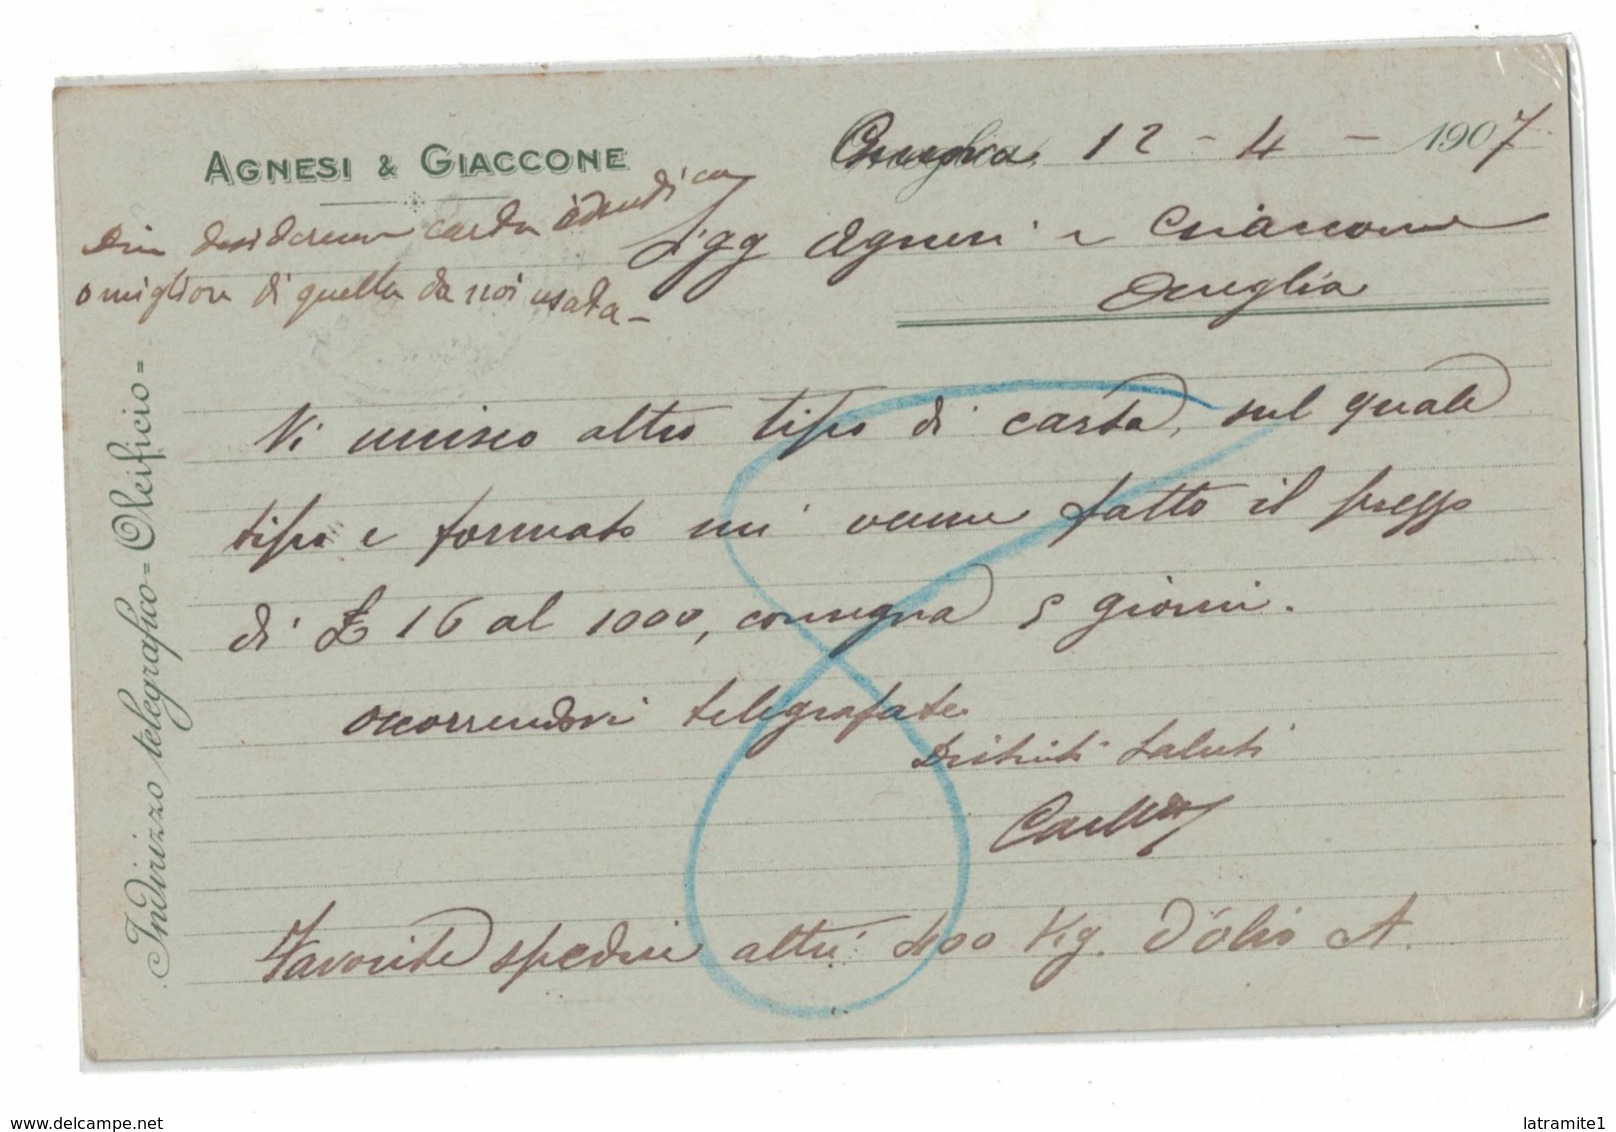 AGNESI & GIACCONE
12 - 4 - 1907
desideriamo carta identica
o migliore di quella da noi usata -
Sigg Agnesi e Giaccone
Oneglia
Indirizzo telegrafico = Oleificio =
Vi unisco altro tipo di carta, sul quale
tipo e formato mi venne fatto il prezzo
di £ 16 al 1000, consegna 5 giorni.
occorrendovi telegrafate
Distinti saluti
Favorite spedire altri 400 Kg. d'olio A.
delcampe.net
latramite1